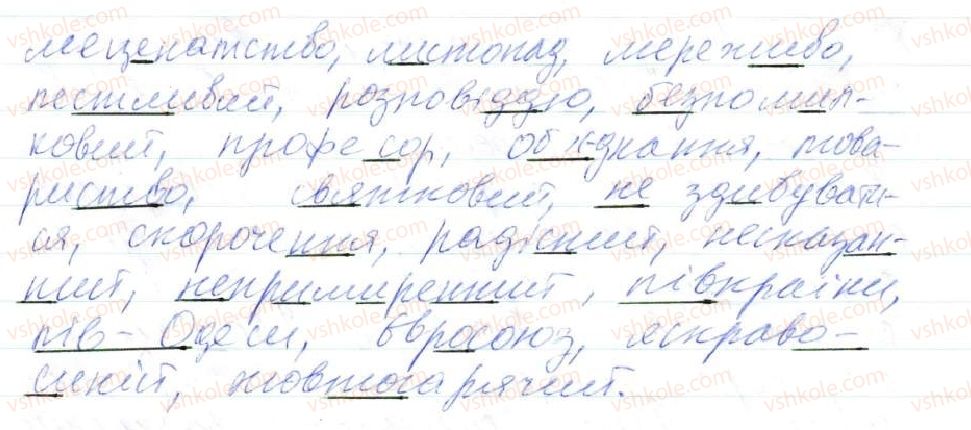 меценатство, листопад, мереживо,
пестливий, розповіддю, безпомил-
ковий, професор, об'єднання, това-
риство, святковий, не здибувати-
ся, скорочення, радісний, несказан-
ний, непримиренний, півкраїни,
пів-Одеси, Євросоюз, яскраво-
синій, жовтогарячий.